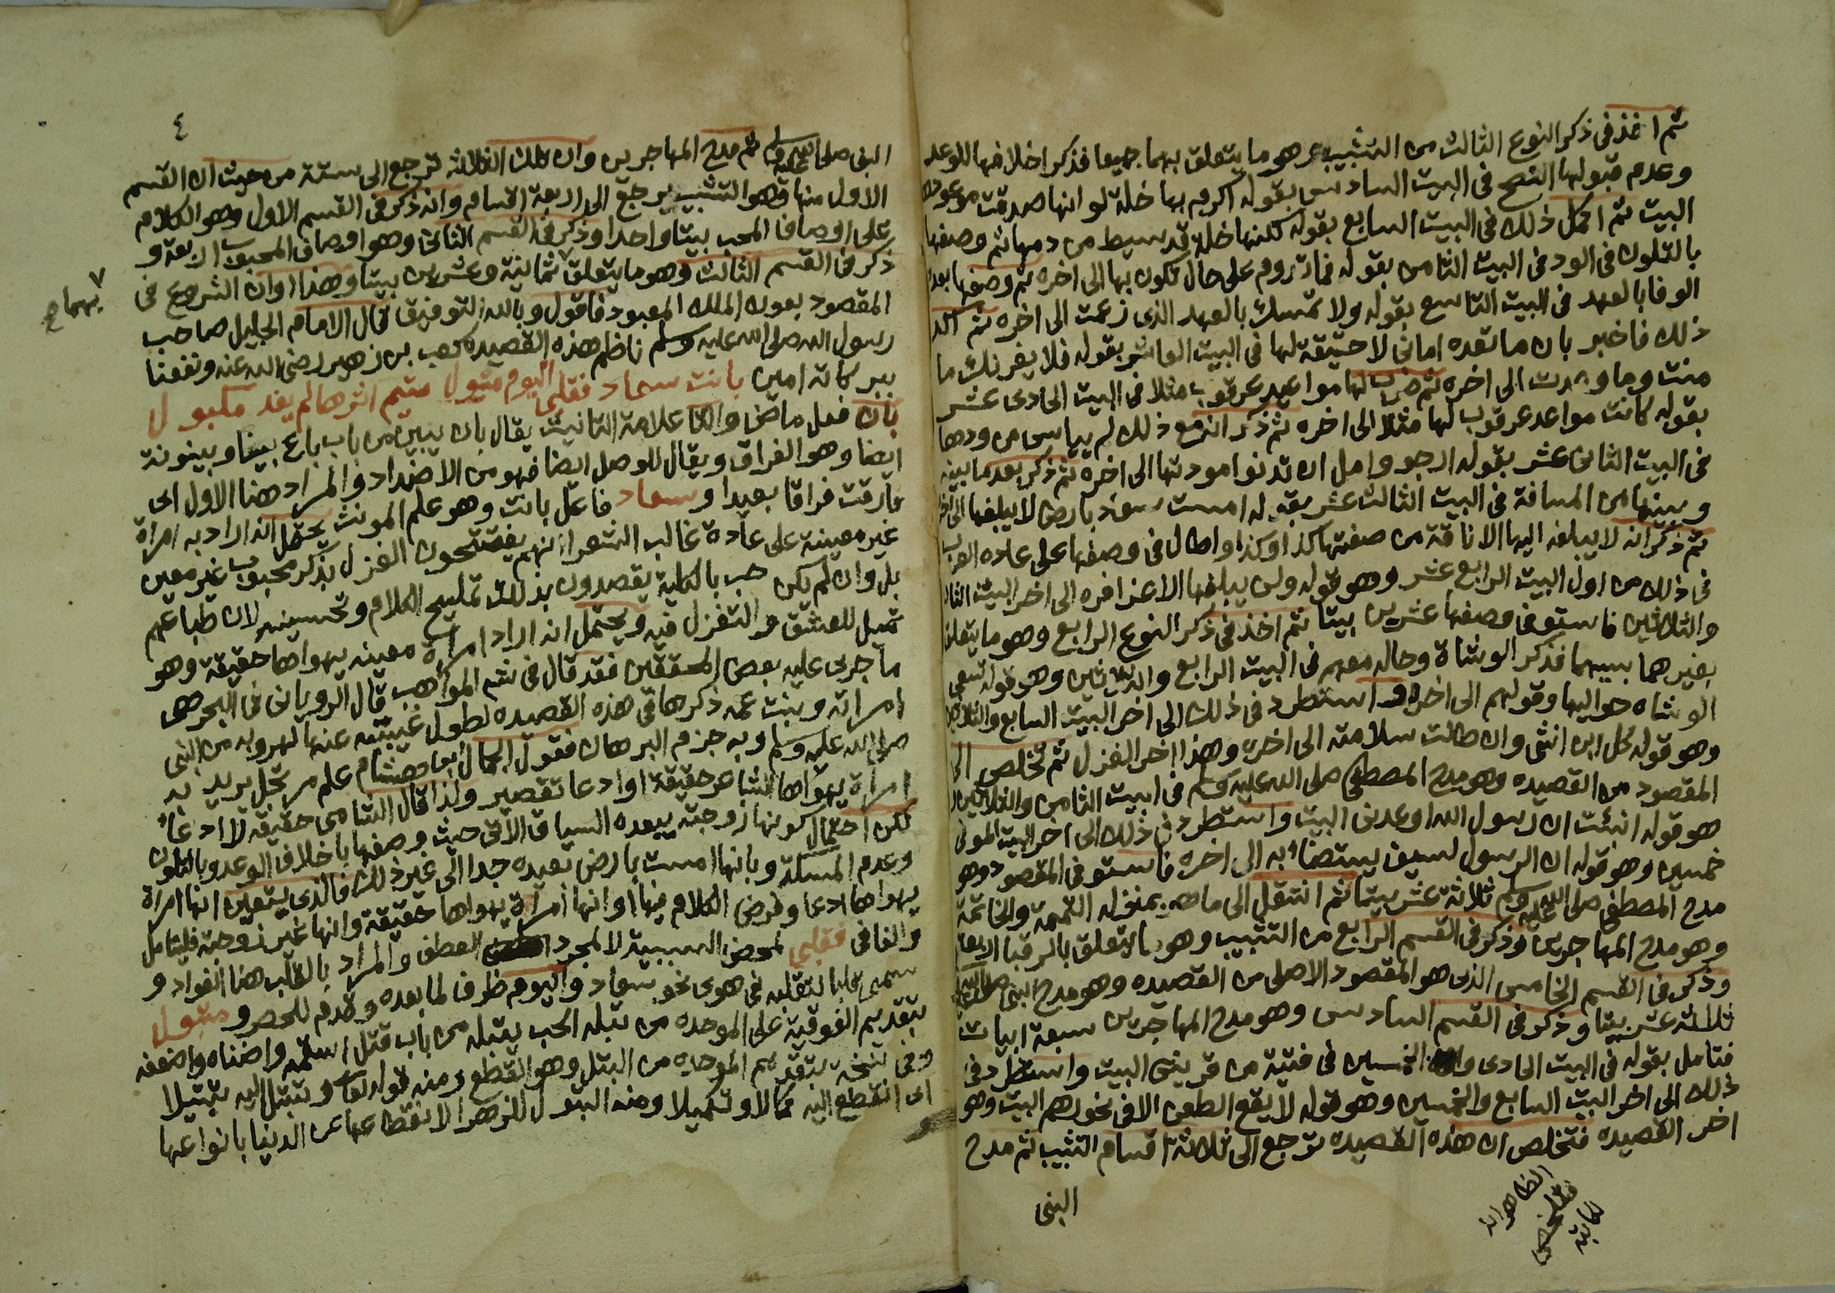 ثم اخذ في ذكر النوع الثالث من التشبيب وهو ما يتعلق بهما جميعا فذكر اخلافها للوعد
وعدم قبولها النصح في البيت السادس بقوله اكرم بها خلة لو انها صدقت موعودها
البيت ثم اكمل ذلك في البيت السابع بقوله لكنها خلة قد سيط من دمها ثم وصفها
بالتلون في الود في البيت الثامن بقوله فما تدوم على حال تكون بها الى اخره ثم وصفها بعدم
الوفا بالعهد في البيت التاسع بقوله ولا تمسك بالعهد الذي زعمت الى اخره ثم اكد
ذلك فاخبر بان ما تعده اماني لا حقيقة لها في البيت العاشر بقوله فلا يغرنك ما
منت وما وعدت الى اخره ثم ضرب لها مواعيد عرقوب مثلا في البيت الحادي عشر
بقوله كانت مواعد عرقوب لها مثلا الى اخره ثم ذكر انه مع ذلك لم يياس من ودها
في البيت الثاني عشر بقوله ارجو وامل ان تدنوا مودتها الى اخره ثم ذكر بعد ما بينه
وبينها من المسافة في البيت الثالث عشر بقوله امست سعاد بارض لا يبلغها الى اخره
ثم ذكر انه لا يبلغه اليها الا ناقة من صفتها كذا وكذا واطال في وصفها على عاده العرب
في ذلك من اول البيت الرابع عشر وهو قوله ولن يبلغها الا عذافرة الى اخر البيت الثالث
والثلاثين فاستوفى وصفها عشرين بيتا ثم اخذ في ذكر النوع الرابع وهو ما يتعلق
بغيرهما بسببهما فذكر الوشاة وحاله معهم في البيت الرابع والثلاثين وهو قوله تسعى
الوشاه حواليها وقولهم الى اخره واستطرد في ذلك الى اخر البيت السابع والثلاثين
وهو قوله كل ابن انثى وان طالت سلامته الى اخره وهذا اخر الغزل ثم تخلص الى
المقصود من القصيده وهو مدح المصطفى صلى الله عليه وسلم في البيت الثامن والثلاثين
هو قوله انبئت ان رسول الله اوعدني البيت واستطرد في ذلك الى اخر البيت الموفي
خمسين وهو قوله ان الرسول لسيف يستضاء به الى اخره فاستوفى المقصود وهو
مدح المصطفى صلى الله عليه وسلم ثلاثة عشر بيتا ثم انتقل الى ما هو بمنزله التتمة والخاتمة
وهو مدح المهاجرين وذكر في القسم الرابع من التشبيب وهو ما يتعلق بالرقبا اربعة
وذكر في القسم الخامس الذي هو المقصود الاصلي من القصيده وهو مدح النبي صلى الله عليه وسلم
ثلاثة عشر بيتا وذكر في القسم السادس وهو مدح المهاجرين سبعة ابيات
فتامل بقوله في البيت الحادي والخمسين في فتية من قريش البيت واستطرد في
ذلك الى اخر البيت السابع والخمسين وهو قوله لا يقع الطعن الا في نحورهم البيت وهو
اخر القصيده فتخلص ان هذه القصيده ترجع الى ثلاثة اقسام التشبيب ثم مدح
النبي
٤
النبي صلى الله عليه وسلم ثم مدح المهاجرين وان تلك الثلاثه ترجع الى ستة من حيث ان القسم
الاول منها وهو التشبيب يرجع الى اربعة اقسام وانه ذكر في القسم الاول وهو الكلام
على اوصاف المحب بيتا واحدا وذكر في القسم الثاني وهو اوصاف المحبوب اربعة و
ذكر في القسم الثالث وهو ما يتعلق ثمانية وعشرين بيتا وهذا اوان الشروع في
بهما صح
المقصود بعون الملك المعبود فاقول وبالله التوفيق قال الامام الجليل صاحب
رسول الله صلى الله عليه وسلم ناظم هذه القصيده كعب بن زهير رضي الله عنه ونفعنا
ببركاته امين بانت سعاد فقلبي اليوم متبول متيم اثرها لم يفد مكبول
بان فعل ماض والتا علامة التانيث يقال بان يبين من باب باع بينا وبينونة
ايضا وهو الفراق ويقال للوصل ايضا فهو من الاضداد والمراد هنا الاول اي
فارقت فراقا بعيدا وسعاد فاعل بانت وهو علم المونث يحتمل انه اراد به امراة
غير معينة على عادة غالب الشعرا انهم يفتتحون الغزل بذكر محبوب غير معين
بل وان لم يكن حب بالكلية يقصدون بذلك تمليح الكلام وتحسينه لان طباعهم
تميل للعشق والتغزل فيه ويحتمل انه اراد امراة معينه يهواها حقيقة وهو
ما جرى عليه بعض المحققين فقد قال في شرح المواهب قال الروياني في البحر هي
امراته وبنت عمه ذكرها في هذه القصيده لطول غيبته عنها لهروبه من النبي
صلى الله عليه وسلم وبه جزم البرهان فقول الجمال ابن هشام علم مرتجل يريد به
امراة يهواها الشاعر حقيقة او ادعا تقصير ولذا قال الشامي حقيقة لا ادعاء
لكن احتمال كونها زوجته يبعده السياق الاتي حيث وصفها باخلاف الوعد وبالتلون
وعدم المسكة وبانها امست بارض بعيده جدا الى غير ذلك فالذي يتعين انها امراة
يهواها ادعا وفرض الكلام فيها او انها امراة يهواها حقيقة وانها غير زوجته فليتامل
والفا في فقلبي لمحض السببية لا لمجرد العطف والمراد بالقلب هنا الفواد و
سمي قلبا لتقلبه في هوى نحو سعاد واليوم ظرف لما بعده وقدم للحصر ومتبول
بتقديم الفوقية على الموحده من تبله الحب يتبله من باب قتل اسقمه واضناه واضعفه
وفي نسخة بتقديم الموحده من البتل وهو القطع ومنه قوله تعالى وتبتل اليه تبتيلا
اي انقطع اليه كمالا وتكميلا ومنه البتول للزهرا لانقطاعها عن الدنيا بانواعها